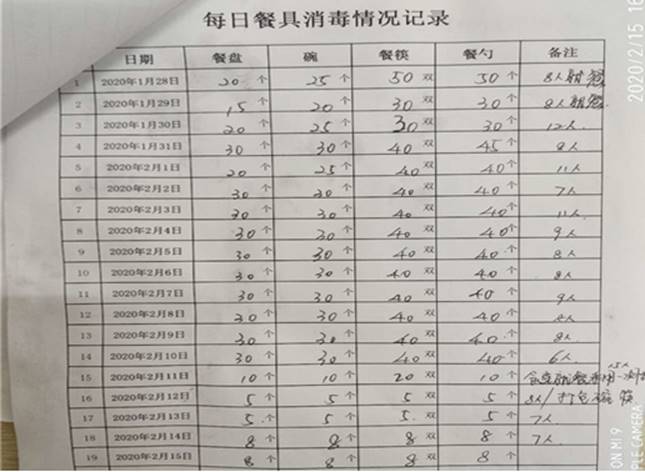 每日餐具消毒情况记录
日期 餐盘 碗 餐筷 餐勺 备注
1 2020年1月28日 20个 25个 50双 50个 8人就餐
2 2020年1月29日 15个 20个 30双 30个 8人就餐
3 2020年1月30日 20个 25个 30双 30个 12人
4 2020年1月31日 30个 30个 40双 45个 8人
5 2020年2月1日 20个 25个 40双 40个 11人
6 2020年2月2日 30个 30个 40双 40个 7人
7 2020年2月3日 30个 30个 40双 40个 11人
8 2020年2月4日 30个 30个 40双 40个 9人
9 2020年2月5日 30个 30个 40双 40个 8人
10 2020年2月6日 30个 30个 40双 40个 8人
11 2020年2月7日 30个 30个 40双 40个 9人
12 2020年2月8日 30个 30个 40双 40个 8人
13 2020年2月9日 30个 30个 40双 40个 8人
14 2020年2月10日 30个 30个 40双 40个 6人
15 2020年2月11日 10个 10个 20双 10个
16 2020年2月12日 5个 5个 5双 5个 8人/打包碗 筷
17 2020年2月13日 5个 5个 5双 5个 7人
18 2020年2月14日 8个 8个 8双 8个 7人
19 2020年2月15日 8个 8个 8双 8个
2020/2/15 16
ON MI 9
PLE CAMERA